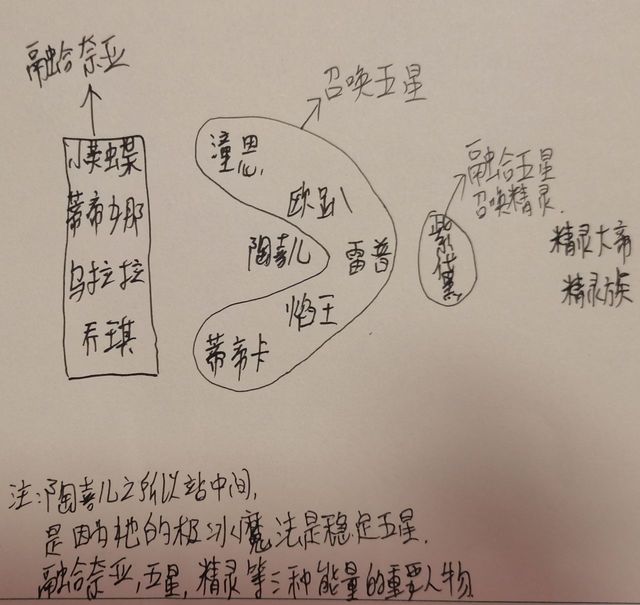 融合奈亚
小英虫枼
蒂帝乡那
乌拉拉
乔琪
召唤五星
潼恩
欧趴
陶喜儿
雷普
焰王
蒂帝卡
融合五星
召唤精灵.
紫黛
精灵大帝
精灵族
注:陶喜儿之所以站中间,
是因为她的极冰魔法是稳定五星.
融合奈亚,五星,精灵等三种能量的重要人物.